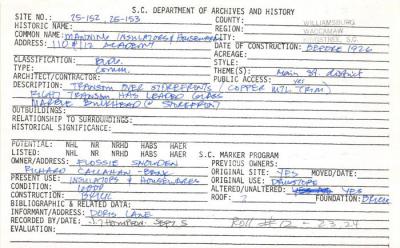 S.C. DEPARTMENT OF ARCHIVES AND HISTORY
SITE NO.: 25-152, 25-153
COUNTY: WILLIAMSBURG
HISTORIC NAME:
REGION: WACCAMAW
COMMON NAME: MANNING INSULATORS/HOUSEWARES
CITY: KINGSTREE, S.C.
ADDRESS: 110 & 112 ACADEMY
DATE OF CONSTRUCTION: BEFORE 1926
ACREAGE:
CLASSIFICATION: BLDG.
STYLE:
TYPE: COMM.
THEME(S): MAIN ST. DISTRICT
ARCHITECT/CONTRACTOR:
PUBLIC ACCESS: YES
DESCRIPTION: TRANSOM OVER STOREFRONTS (COPPER MTL TRIM)
RIGHT TRANSOM HAS LEADED GLASS
MARBLE BULKHEAD (@ STOREFRONT)
OUTBUILDINGS:
RELATIONSHIP TO SURROUNDINGS:
HISTORICAL SIGNIFICANCE:
POTENTIAL: NHL NR NRHD HABS HAER
LISTED: NHL NR NRHD HABS HAER S.C. MARKER PROGRAM
OWNER/ADDRESS: FLOSSIE SNOWDEN
PREVIOUS OWNERS:
RICHARD CALLAHAN - BANK
ORIGINAL SITE: YES MOVED/DATE:
PRESENT USE: INSULATORS & HOUSEWARES
ORIGINAL USE: DRUGSTORE
CONDITION: GOOD
ALTERED/UNALTERED: YES
CONSTRUCTION: BRICK
ROOF: ? FOUNDATION: BRICK
BIBLIOGRAPHIC & RELATED DATA:
INFORMANT/ADDRESS: DORIS LANE
RECORDED BY/DATE: J. Hamilton Sept 5 ROLL #12 - 23, 24
EVALUATION: